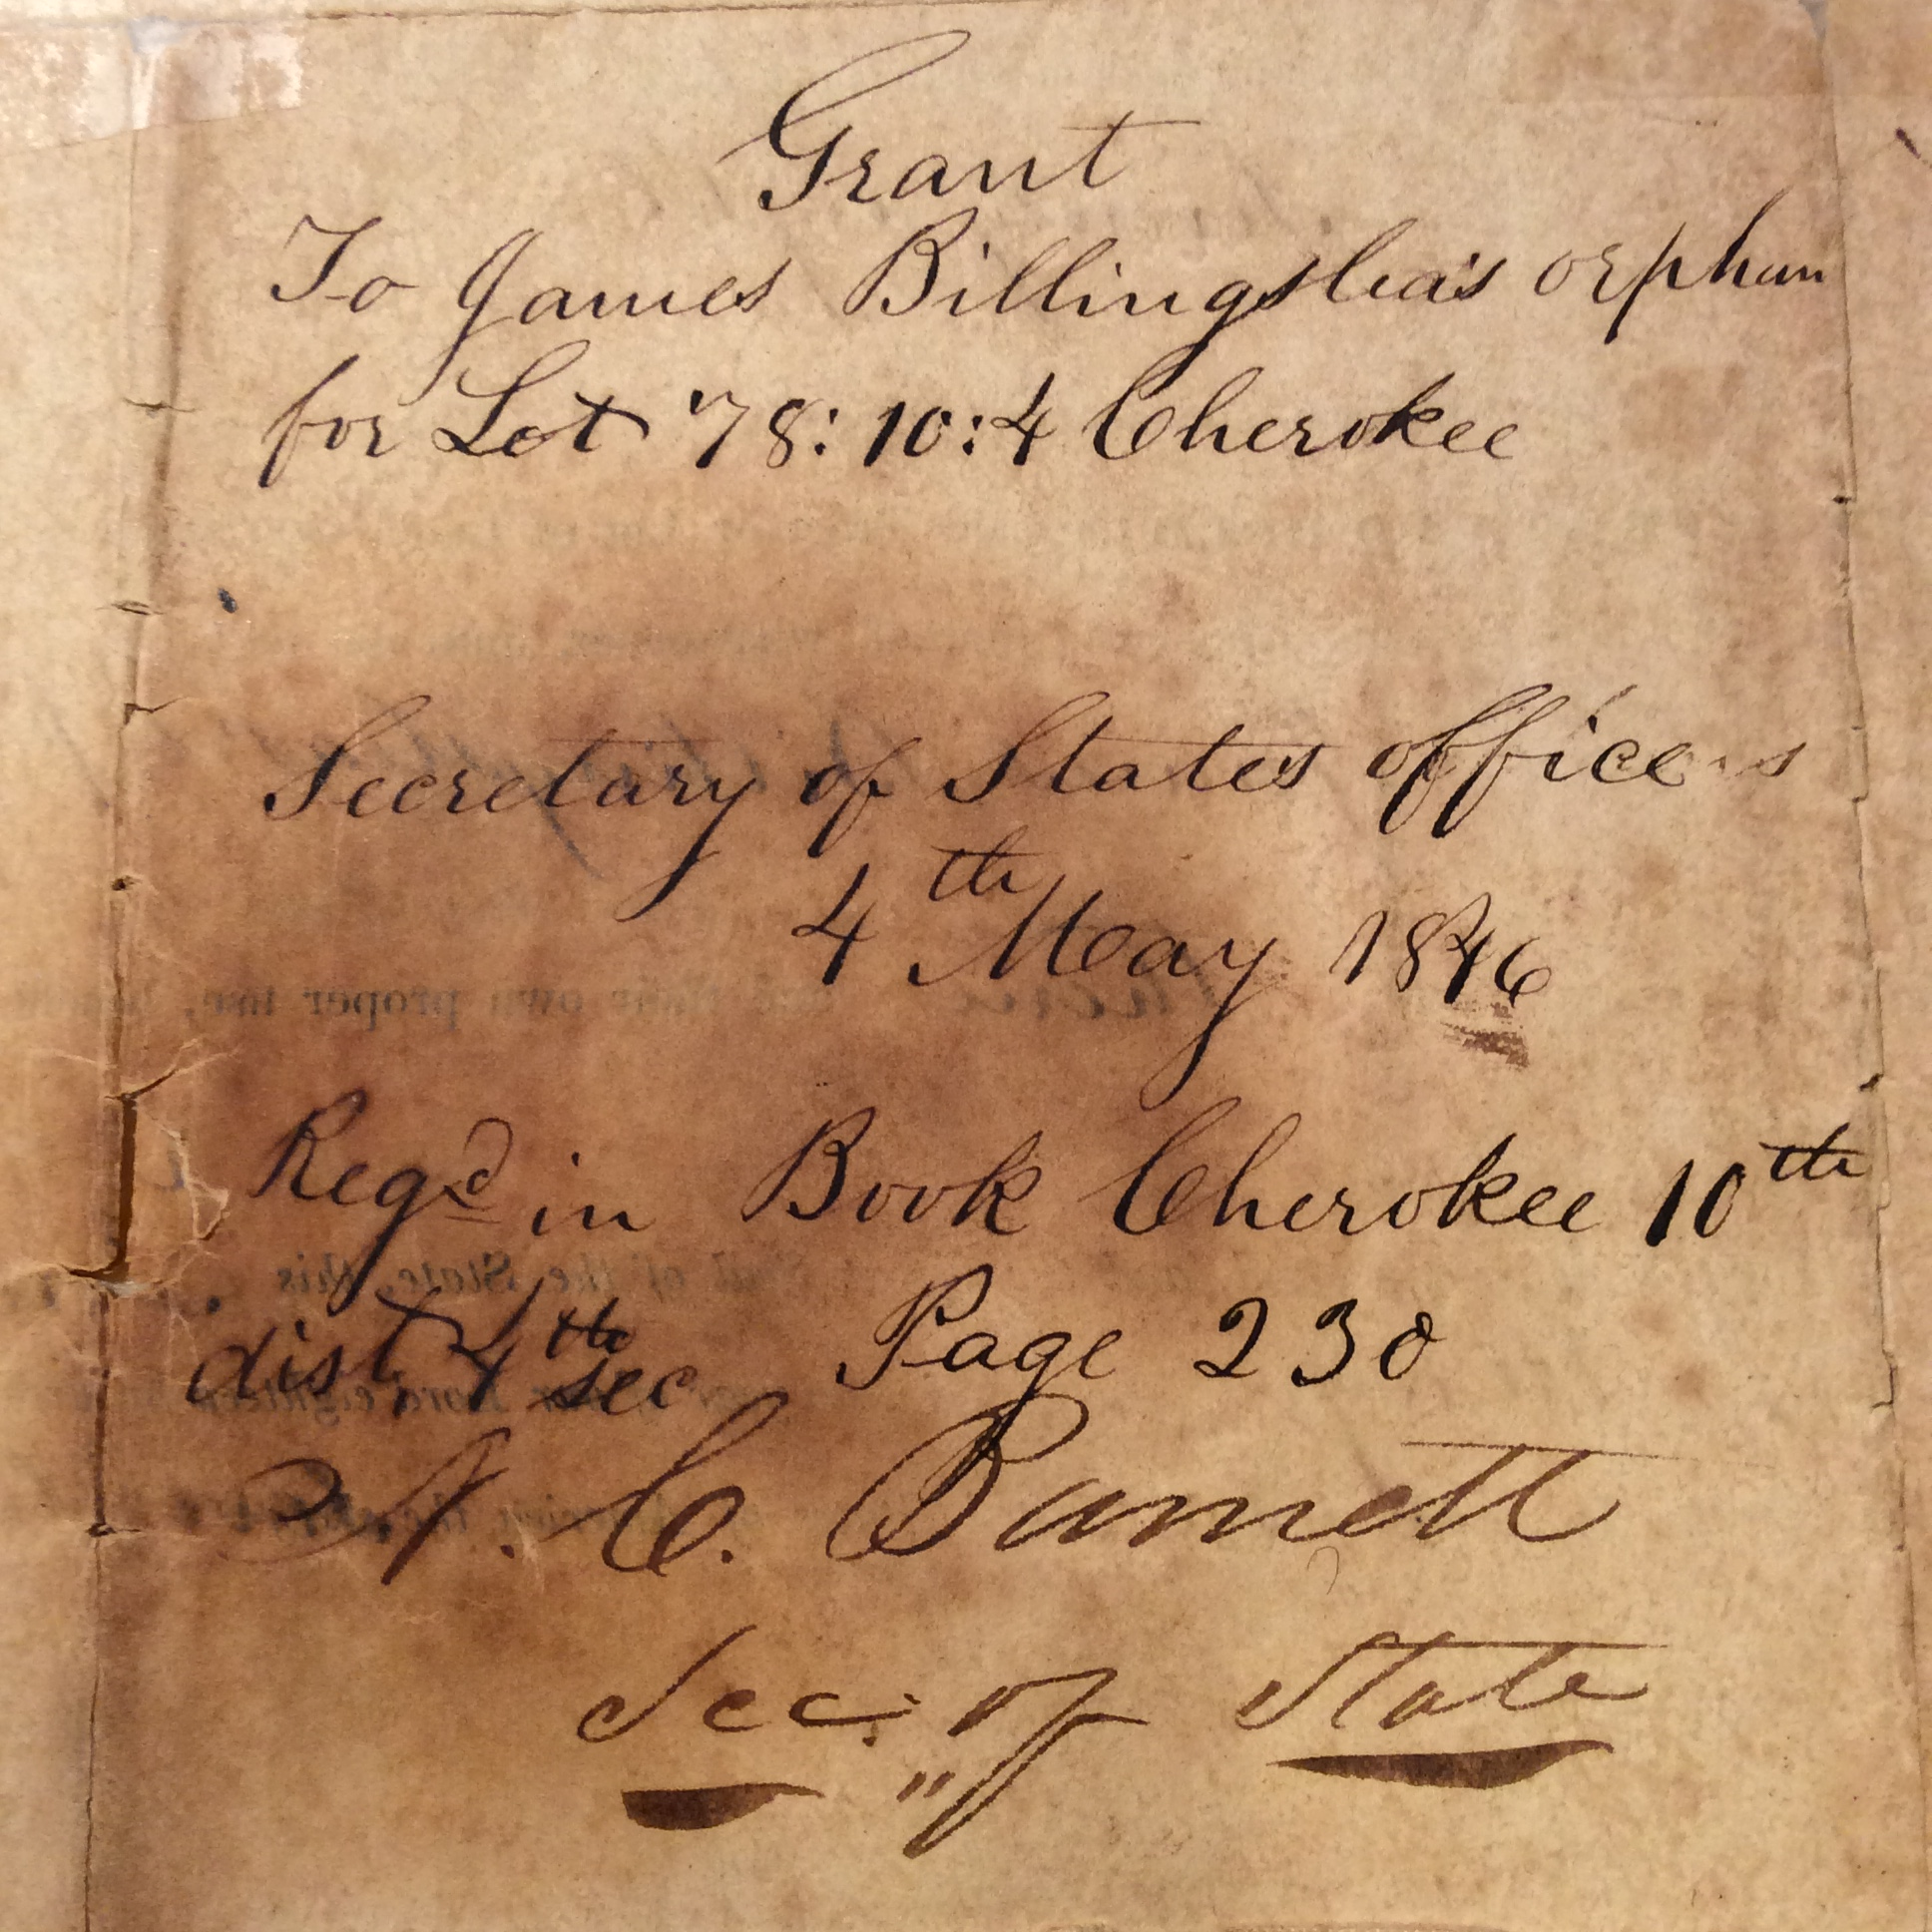 Grant
To James Billingslea's orphan
for Lot 78: 10: 4 Cherokee
Secretary of States office
4th May 1846
Regd in Book Cherokee 10th
dist 4th sec Page 230
N. C. Barnett
Sec: of State
own proper use,
of the State, this